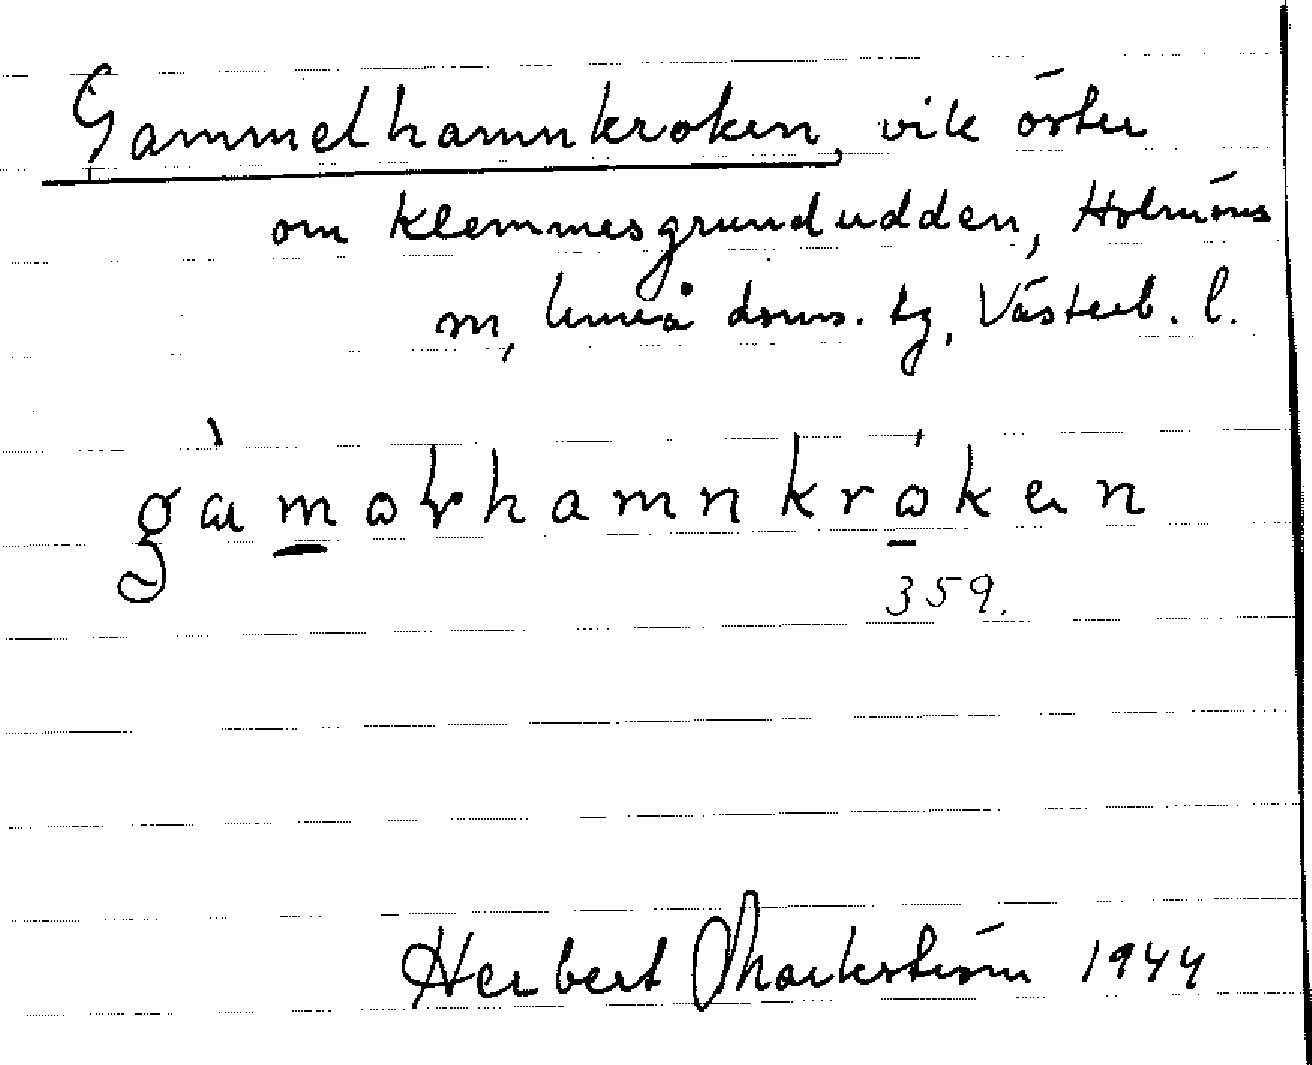 Gammelhamnkroken, vik öster
om Klemmesgrundudden, Holmöns
sn, Umeå doms. tg, Västerb. l.
gàmalhamnkróken
359.
Herbert Markström 1944